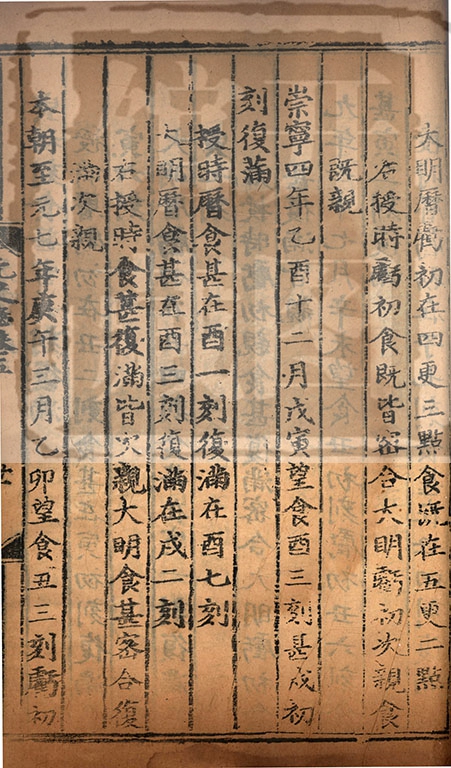 大明曆虧初在四更三點食既在五更二點
右授時虧初食既皆密合大明虧初次親食
既親
崇寧四年乙酉十二月戊寅望食酉三刻甚戌初
刻復滿
授時曆食甚在酉一刻復滿在酉七刻
大明曆食甚在酉三刻復滿在戌二刻
右授時食甚復滿皆次親大明食甚密合復
滿次親
本朝至元七年庚午三月乙卯望食丑三刻虧初